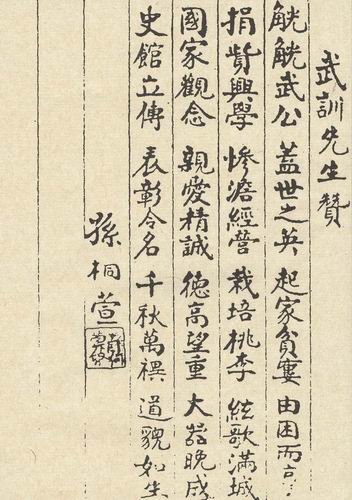 武訓先生贊
觥觥武公 蓋世之英 起家貧寠 由困而亨
捐貲興學 慘澹經營 栽培桃李 絃歌滿城
國家觀念 親愛精誠 德高望重 大器晚成
史館立傳 表彰令名 千秋萬禩 道貌如生
孫桐萱